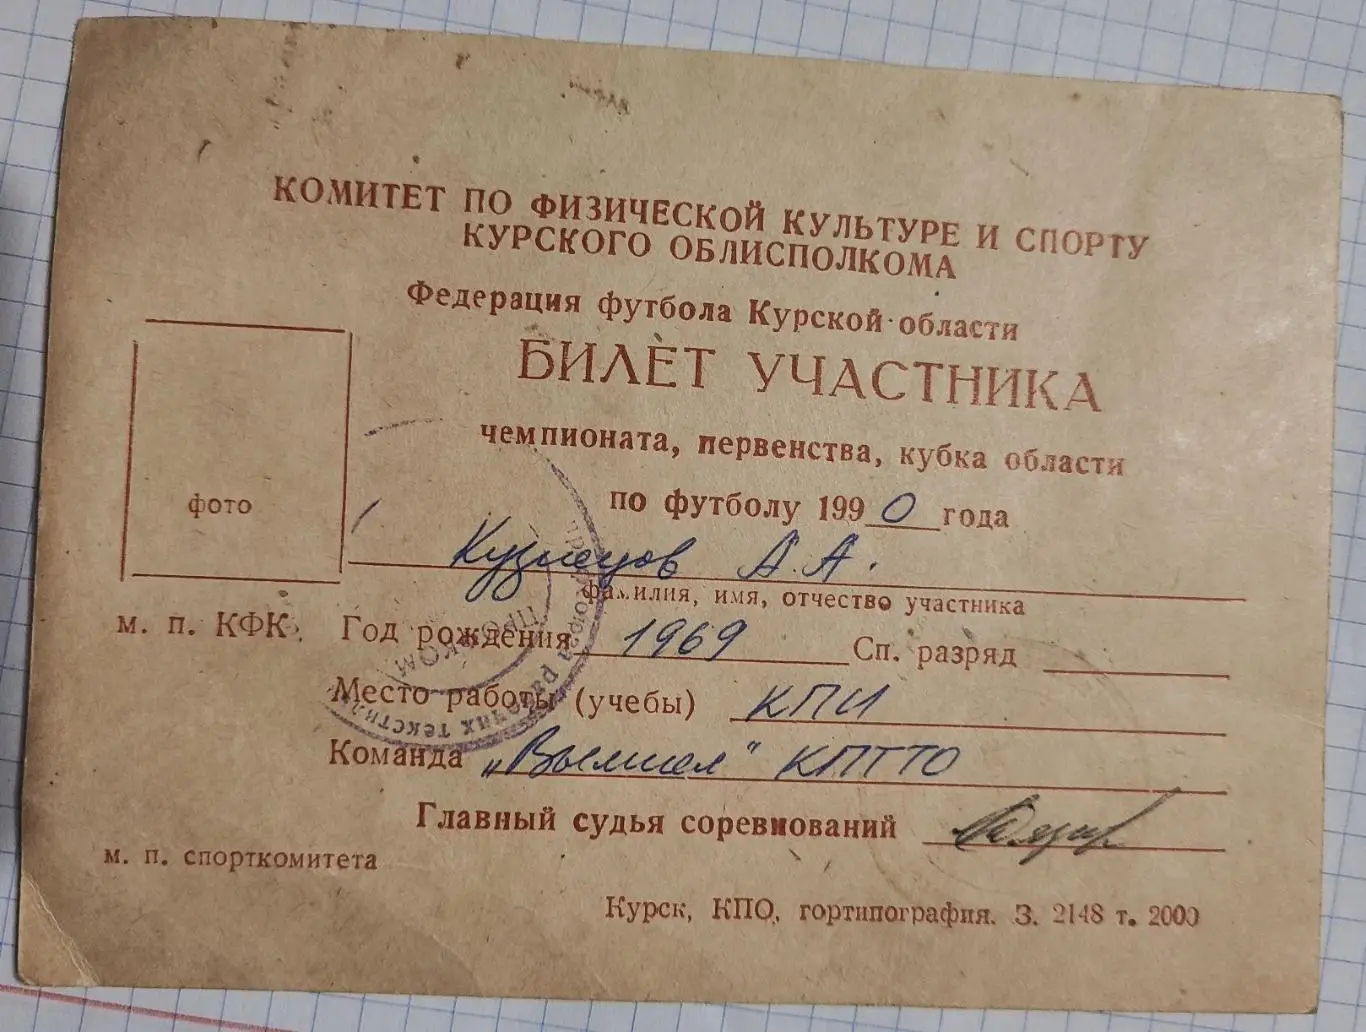 КОМИТЕТ ПО ФИЗИЧЕСКОЙ КУЛЬТУРЕ И СПОРТУ
КУРСКОГО ОБЛИСПОЛКОМА
Федерация футбола Курской области
БИЛЕТ УЧАСТНИКА
чемпионата, первенства, кубка области
по футболу 1990 года
фото
Кузнецов А.А.
фамилия, имя, отчество участника
м. п. КФК
Год рождения 1969 Сп. разряд
Место работы (учебы) КПИ
Команда „Вымпел" КПТТО
Главный судья соревнований
м. п. спорткомитета
Курск, КПО, гортипография. З. 2148 т. 2000